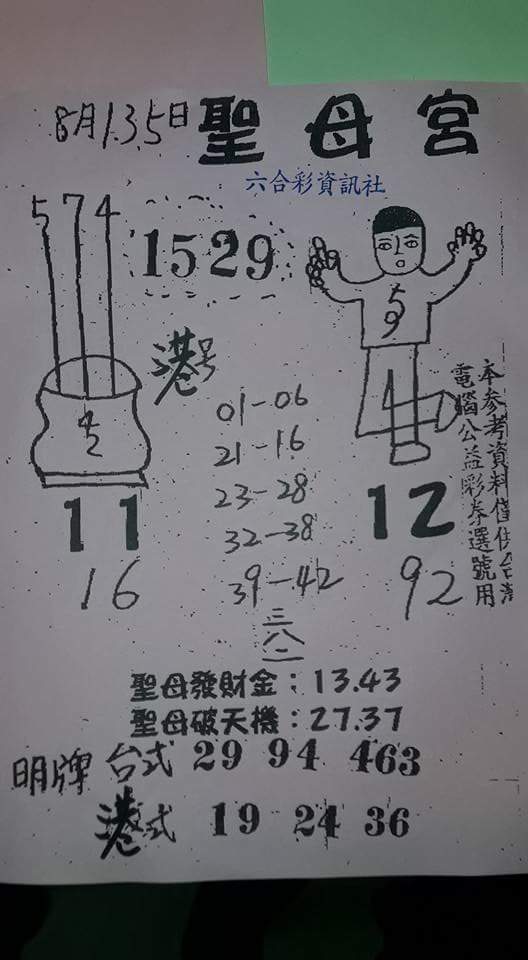 8月1.3.5日 聖母宮
六合彩資訊社
574
1529
港号
01-06
21-16
23-28
32-38
39-42
三八二
11
16
12
92
本参考資料僅供台灣
電腦公益彩券選號用
聖母發財金：13.43
聖母破天機：27.37
明牌 台式 29 94 463
港式 19 24 36